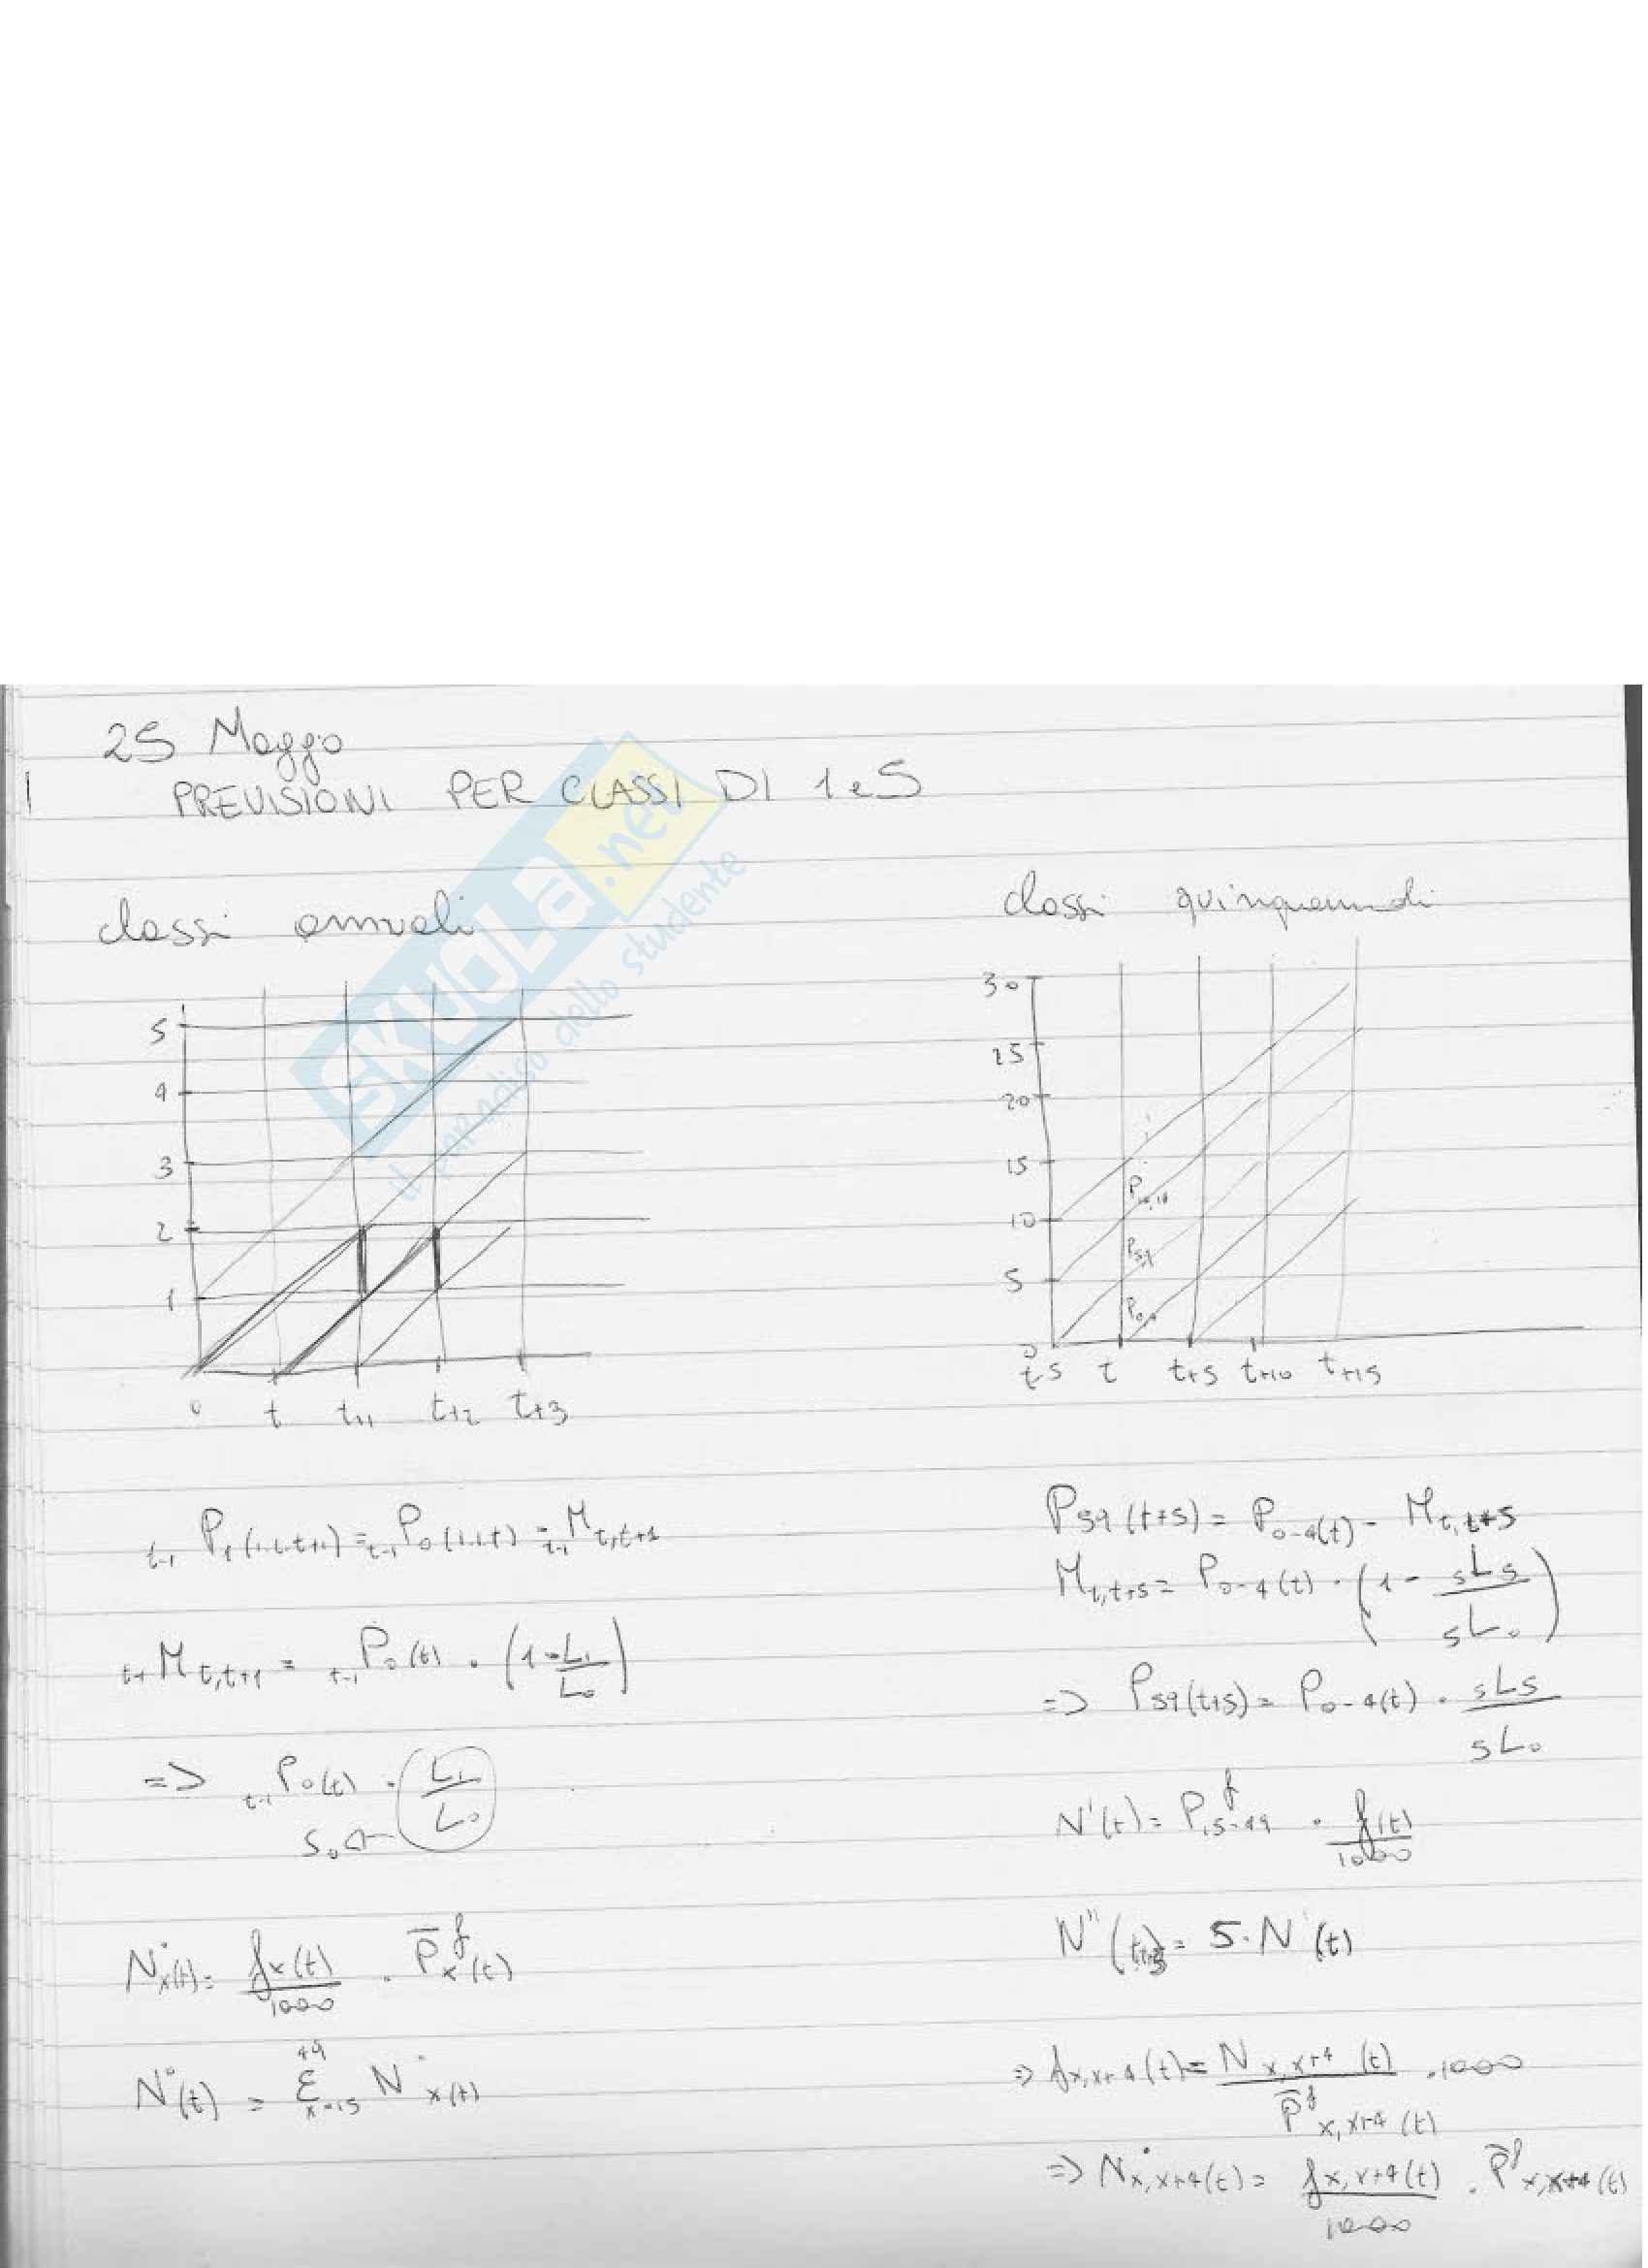 25 Maggio
PREVISIONI PER CLASSI DI 1 e 5
SKUOLA.net
il paradiso dello studente
classi annuali
5
4
3
2
1
0 t t+1 t+2 t+3
t-1 P1(1.1.t+1) = t-1 P0(1.1.t) - t-1 M t,t+1
M t,t+1 = t-1 P0(t) · (1 - L1/L0)
=> t-1 P0(t) · L1/L0
Nx(t) = fx(t)/1000 · P̄^f x(t)
N°(t) = Σ x=15 49 N° x(t)
classi quinquennali
30
25
20
15
10
5
0
P5,9
P0,
t-5 t t+5 t+10 t+15
P59(t+5) = P0-4(t) - M t,t+5
M t,t+5 = P0-4(t) · (1 - 5L5/5L0)
=> P59(t+5) = P0-4(t) · 5L5/5L0
N'(t) = P^f 15-49 · f(t)/1000
N''(t,t+5) = 5·N'(t)
=> f x,x+4(t) = N x,x+4(t)/P̄^f x,x+4(t) · 1000
=> N x,x+4(t) = f x,x+4(t)/1000 · P̄^f x,x+4(t)